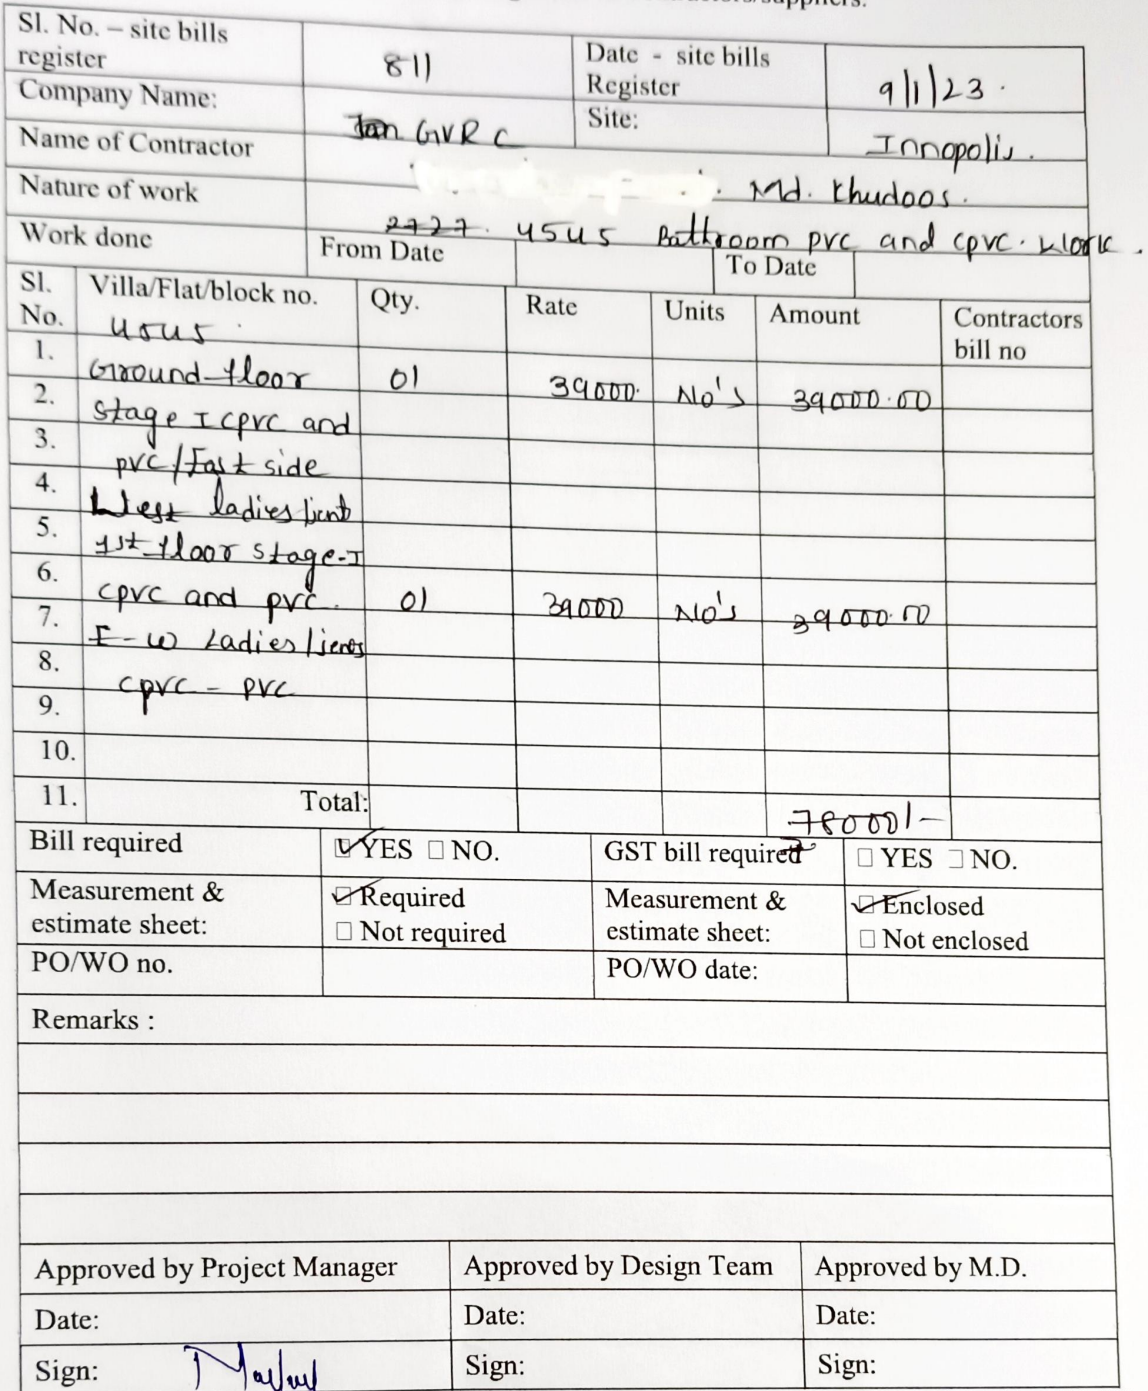 Sl. No. – site bills register 811 Date - site bills Register 9/1/23.
Company Name: GVRC Site: Innopolis.
Name of Contractor Md. Khudoos.
Nature of work 2727. 4545 Bathroom pvc and cpvc. Work.
Work done From Date To Date
Sl. No. Villa/Flat/block no. Qty. Rate Units Amount Contractors bill no
4545.
1. Ground floor 01 39000. No's 39000.00
2. Stage I cpvc and
3. pvc/East side
4. West ladies/
5. 1st floor stage-I
6. cpvc and pvc. 01 39000 No's 39000.00
7. E-W Ladies/
8. cpvc - pvc
9.
10.
11. Total: 78000/-
Bill required YES NO. GST bill required YES NO.
Measurement & estimate sheet: Required Not required Measurement & estimate sheet: Enclosed Not enclosed
PO/WO no. PO/WO date:
Remarks :
Approved by Project Manager Approved by Design Team Approved by M.D.
Date: Date: Date:
Sign: Sign: Sign: